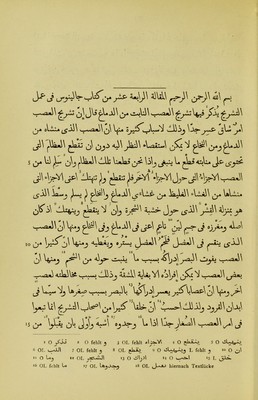 بسم الله الرحمن الرحيم المقالة الرابعة عشر من كتاب جالينوس فى عمل
التشريح يُذكر فيها تشريح العصب النابت من الدماغ قال إنّ تشريح العصب
امرٌ شاقّ عسر جدًّا وذلك لاسباب كثيرة منها انّ العصب الذى منشاه من
الدماغ ومن النخاع لا يمكن استقصاء النظر اليه دون ان تقطع العظام التى
تحتوى على منابته قطع ما ينبغى واذا نحن قطعنا تلك العظام وان سلم لنا من
العصب الاجزاء التى حول الاجزاء الاخر فلم تنقطع ولم تنهتك اعنى الاجزاء التى
منشاها من الغشاء الغليظ من غشاءى الدماغ والنخاع لم يسلم وسط الذى
هو بمنزلة القشر الذى حول خشبة الشجرة وان لا ينقطع وينهتك اذ كان
اصله ومغرزه فى جسم ليّن ناعم اعنى فى الدماغ وفى النخاع ومنها انّ العصب
الذى ينقسم فى العضل فلحم العضل يستره ويغطّيه ومنها انّ كثيرا من
العصب يفوت البصر إدراكُه بسبب ما ينبت حوله من الشحم ومنها انّ
بعض العصب لا يمكن إفرادُه الا بغاية المشقّة وذلك بسبب مخالطته لعصب
آخر ومنها انّ اعصابا كثير يعسر إدراكها بالبصر بسبب صغرها ولا سيّما فى
ابدان القرود ولذلك احسب انّ خلقا كثيرا من اصحاب التشريح انما تبعوا
فى امر العصب الصغار جدّا اذا ما وجدوه أشبه وأولى بان يقبلوا من